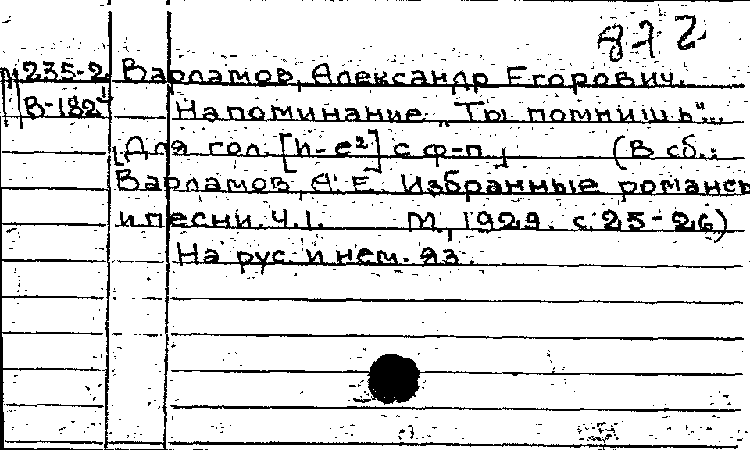 872
М 235-2 Варламов, Александр Егорович.
В-182 Напоминание. „Ты помнишь"...
[Для гол. [h-e²] с ф-п.] (В сб.:
Варламов, А.Е. Избранные романсы
и песни. Ч.1. М., 1929. с. 25-26)
На рус. и нем. яз.